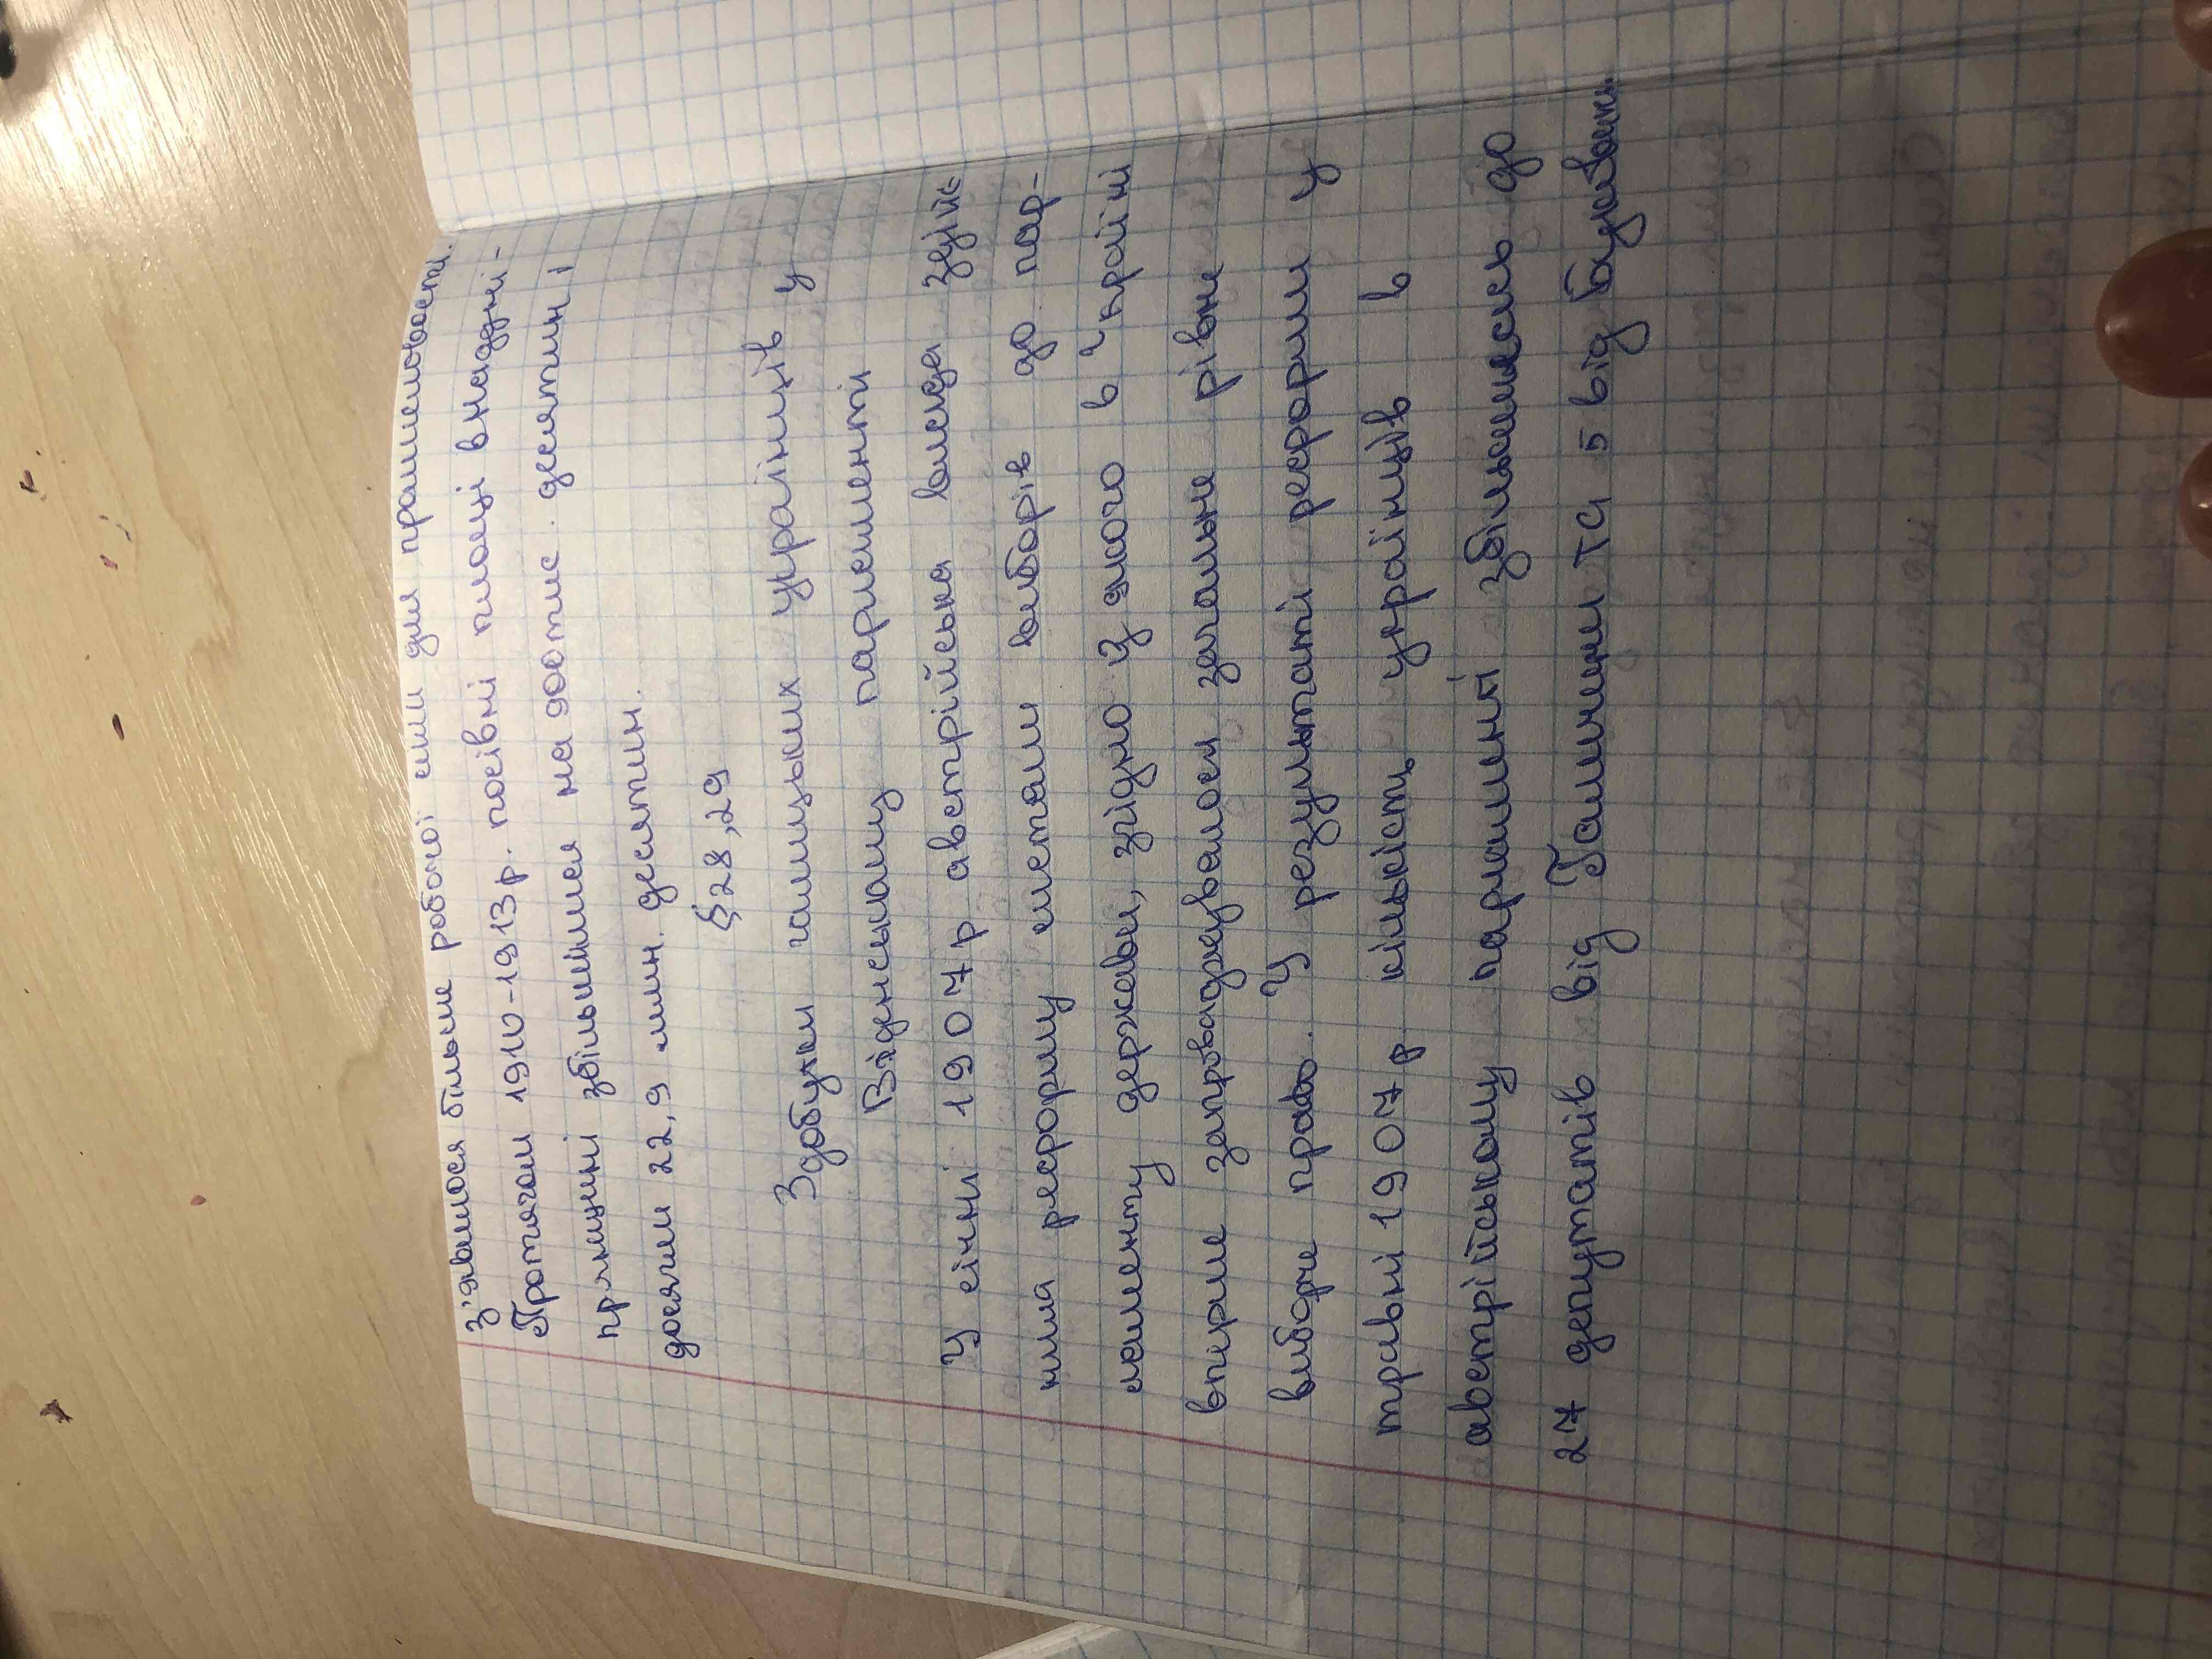 з'явилося більше робочої сили для промисловості.
Протягом 1910-1913р. посівні площі внаддні-
прянщині збільшилися на 900тис. десятин і
досягли 22,9 млн. десятин.
§28,29
Здобутки галицьких українців у
Віденському парламенті
У січні 1907р. австрійська влада здійс
нила реформу системи виборів до пар-
ламенту держави, згідно з якого в країні
вперше запроваджувалося загальне рівне
виборче право. У результаті реформи у
травні 1907р. кількість українців в
австрійському парламенті збільшилась до
27 депутатів від Галичини та 5 від Буковини.